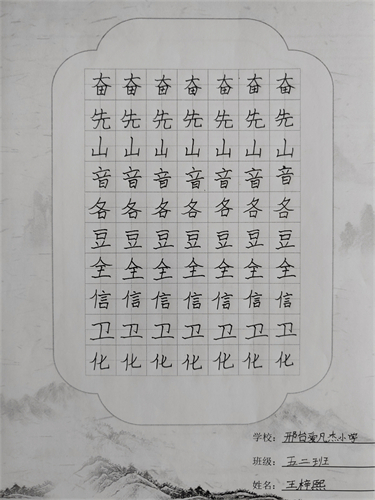 奋奋奋奋奋奋奋
先先先先先先先
山山山山山山山
音音音音音音音
各各各各各各各
豆豆豆豆豆豆豆
全全全全全全全
信信信信信信信
卫卫卫卫卫卫卫
化化化化化化化
学校：邢台凡杰小学
班级：五二班
姓名：王梓熙